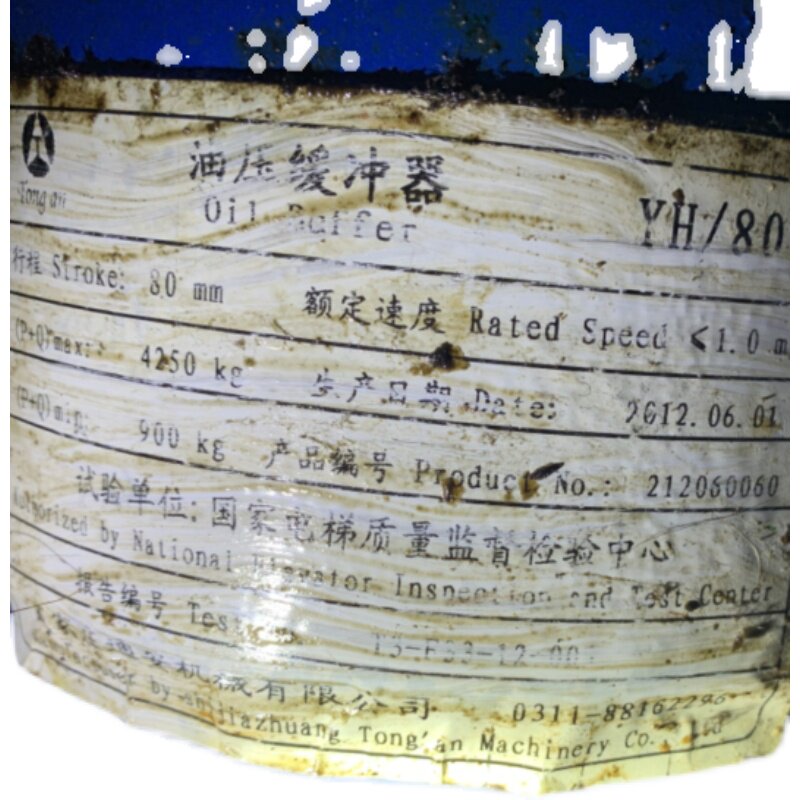 Tong'an
油压缓冲器
Oil Buffer
YH/80
行程 Stroke: 80 mm 额定速度 Rated Speed <1.0 m
(P+Q)max: 4250 kg 生产日期 Date: 2012.06.01
(P+Q)min: 900 kg 产品编号 Product No.: 212060060
试验单位: 国家电梯质量监督检验中心
Authorized by National Elevator Inspection and Test Center
报告编号 Test
通安机械有限公司 0311-88162296
by Shijiazhuang Tong'an Machinery Co. Ltd